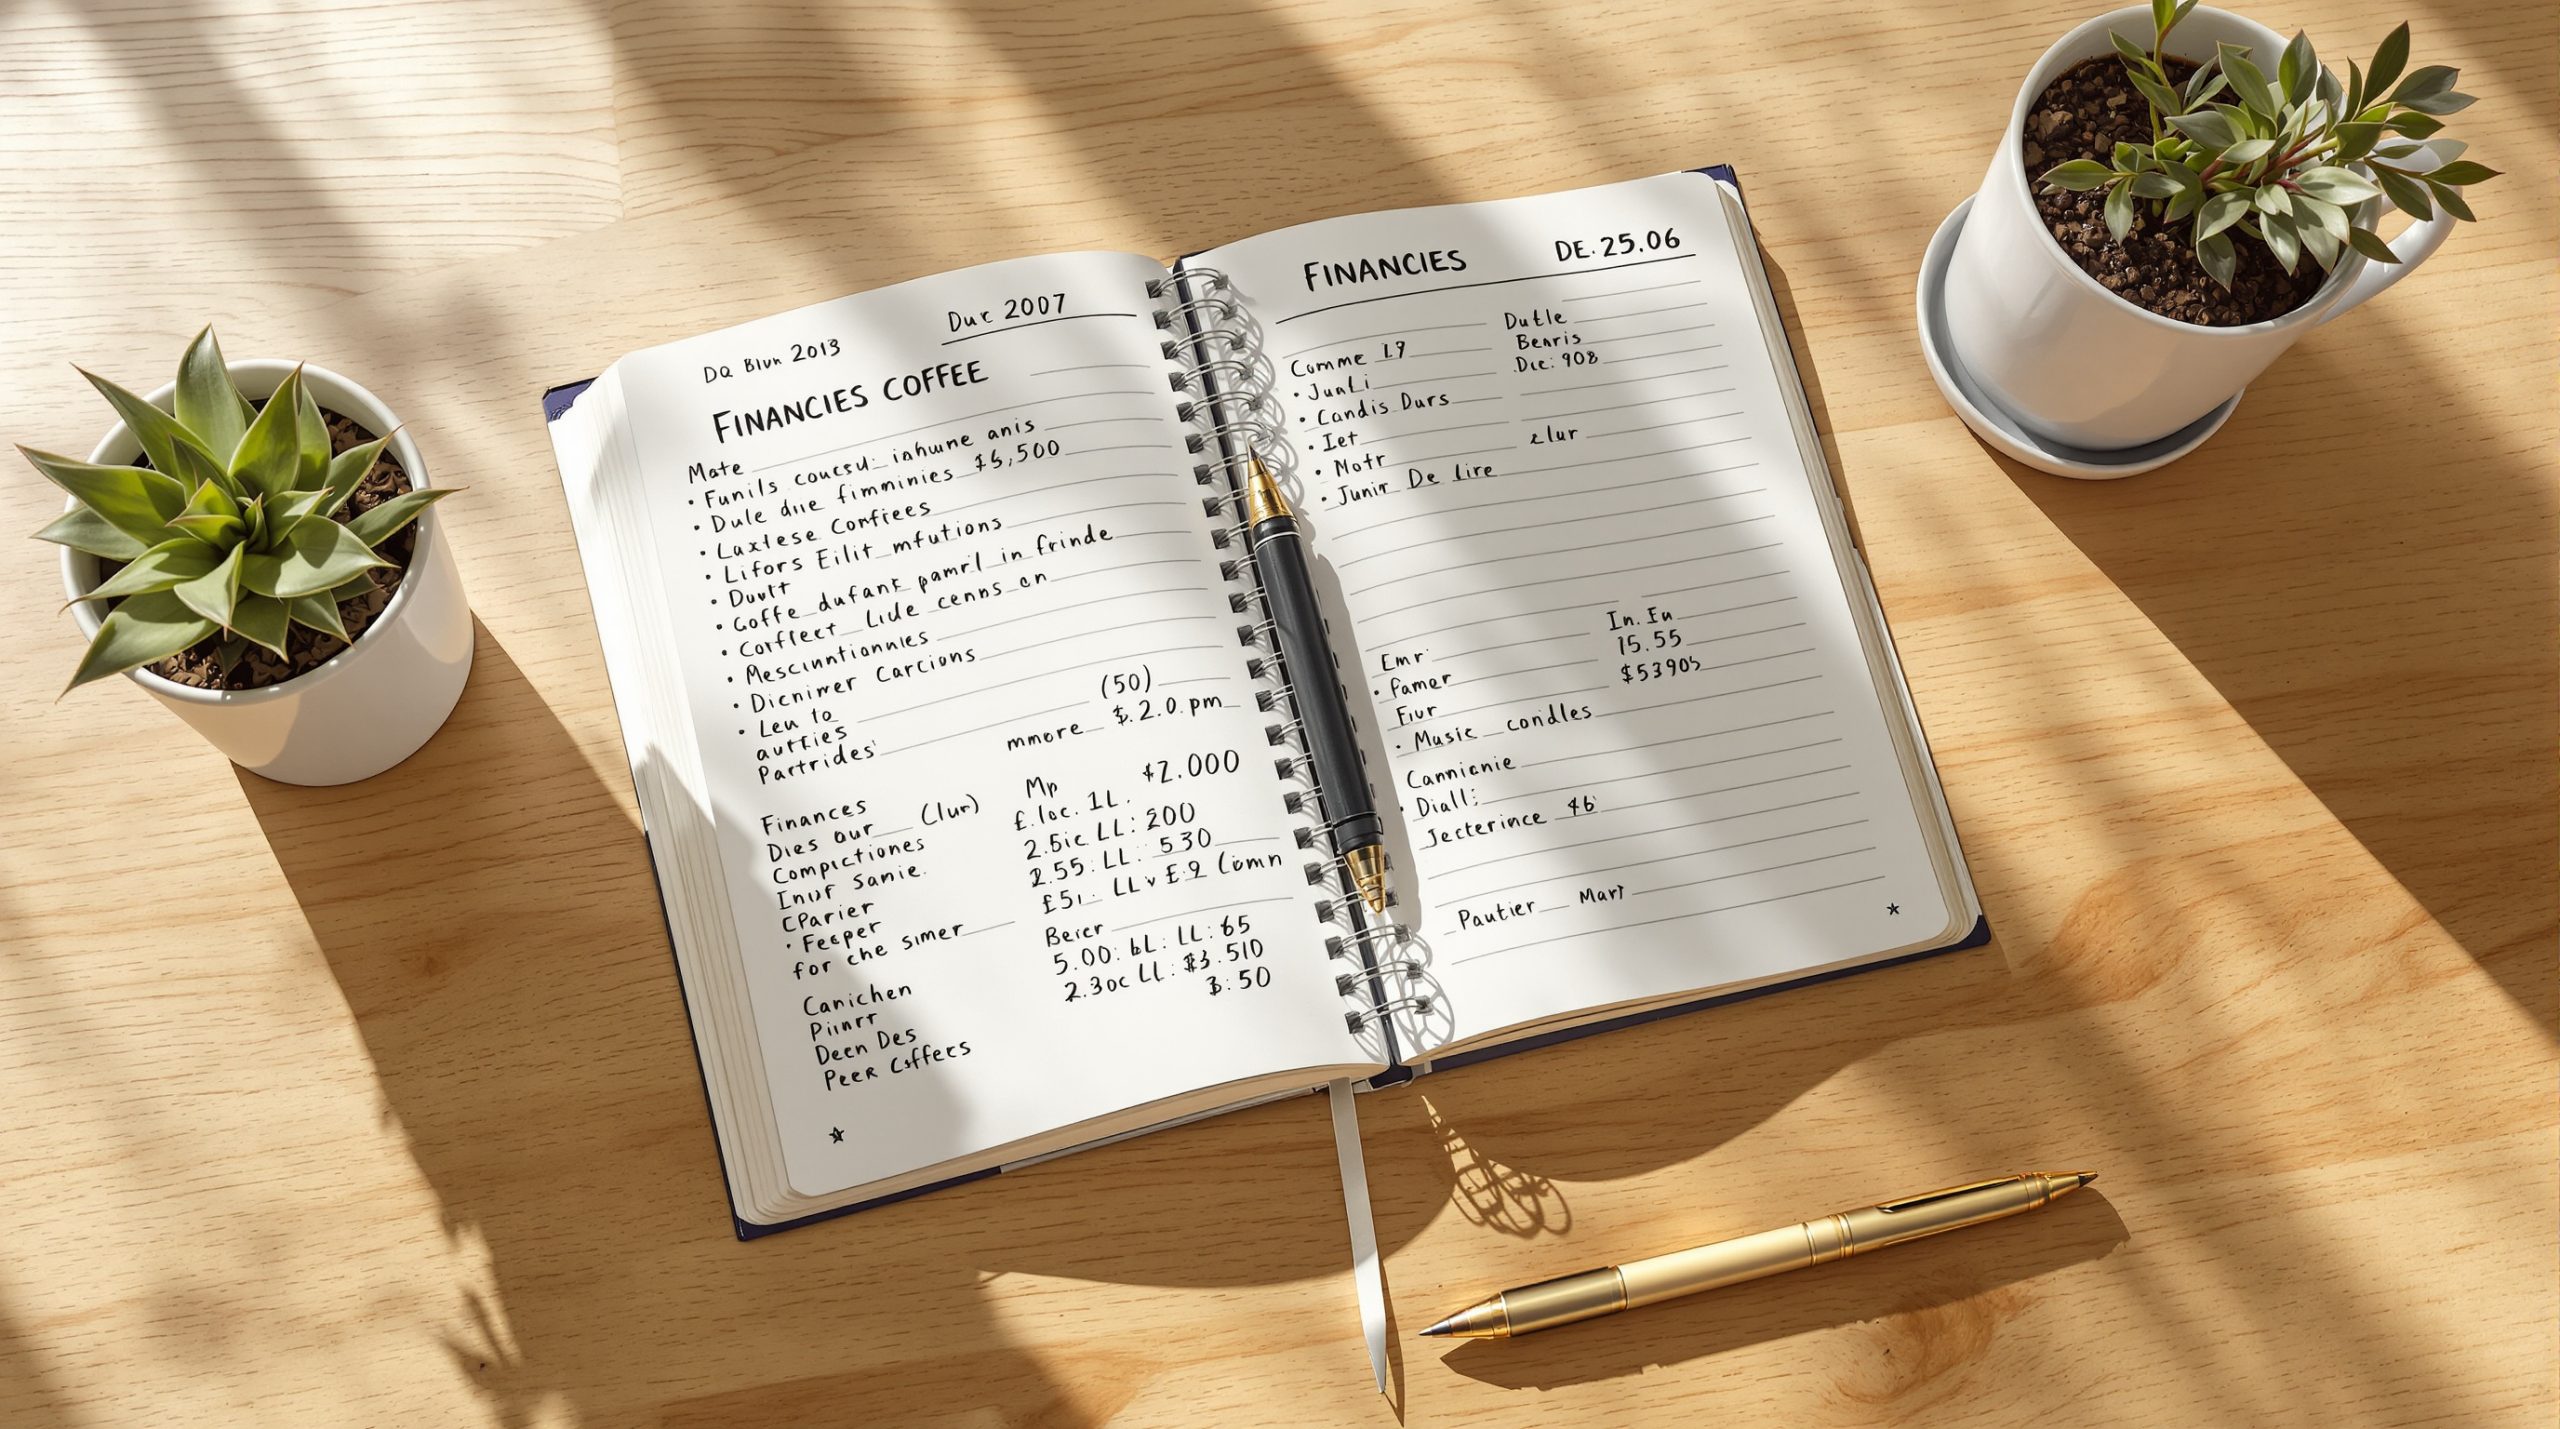 DQ Blun 2013
Duc 2007
FINANCIES COFFEE
Mate
• Funils coucsu: inhume anis
• Dule due fimminies $5,500
• Laxtese Confices
• Lifors Eilit mfutions
• Duvlt
• Goffe dufank pamrl in frinde
• Corflect Lide cenns on
• Mescinntionnies
• Dicnimer Carcions
• Leu to
aurties
Partrides
(50)
mmore $.2.0.pm
Finances
Dies our (lur)
Compictiones
Inur Sanie.
CParier
• Feeper
for che simer
Canichen
Piinrt
Deen Des
Peer Coffees
Mp $2.000
£.loc. 1L.
2.5ic LL: 200
2.55: LL: 530
£51.: LLv E.2 Comn
Beier
5.00: 6L: LL: 65
2.30c LL: $3.510
3:50
FINANCIES
DE.25.06
Comme 19
• JunLi
• Candis Durs
• Iet
• Motr
• Junir De Lire
Dutle
Benris
Die: 908
elur
Emr
• famer
Eiur
• Music condles
Cannicnie
• Diall:
Jecterince 46
In. Eu
15.55
$53905
Pautier Mart